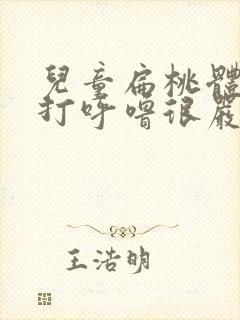 兒童扁桃體
打呼嚕很嚴
王浩明